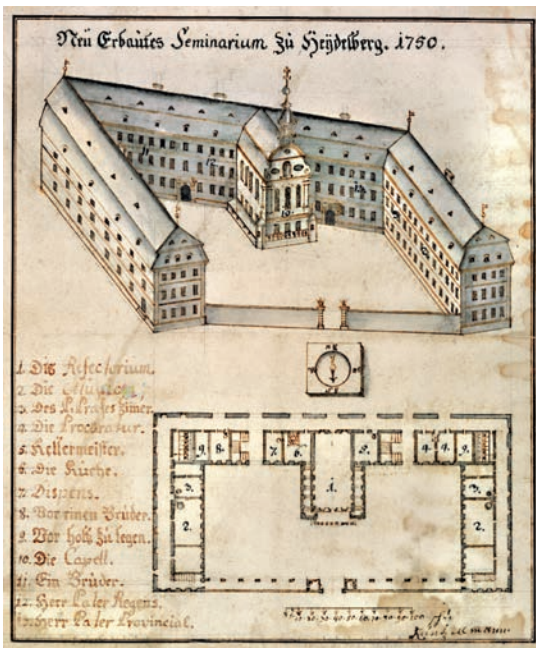 Neü Erbautes Seminarium Zü Heÿdelberg. 1750.
1. Das Refectorium.
2. Die
3. Des P. Prases Zimer.
4. Die Procuratur.
5. Kellermeister.
6. Die Küche.
7. Dispens.
8. Vor einen Brüder.
9. Vor holtz Zu legen.
10. Die Capell.
11. Ein Brüder.
12. Herr Pater Regens.
13. Herr Pater Provincial.
9. 8. 7. 6. 1. 5. 4. 4. 9.
3. 3.
2. 2.